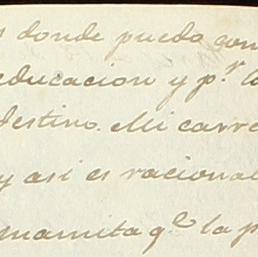 donde puedo con
educacion y p.r l
destino. Mi carre
y asi es racional
mamita q.e la p